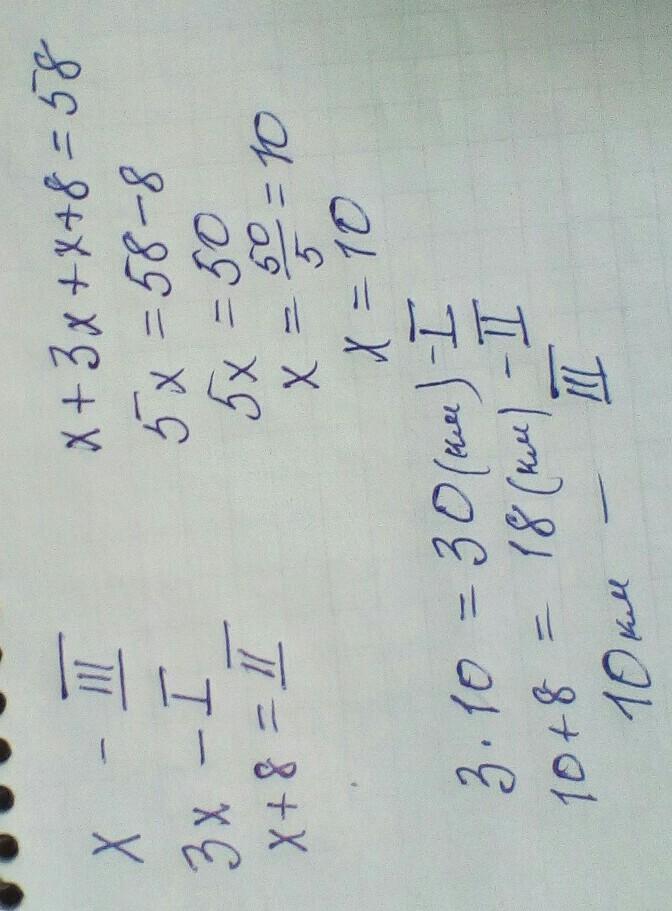 x - III
3x - I
x + 8 = II
x + 3x + x + 8 = 58
5x = 58 - 8
5x = 50
x = 50/5 = 10
x = 10
3 · 10 = 30 (км) - I
10 + 8 = 18 (км) - II
10 км - III